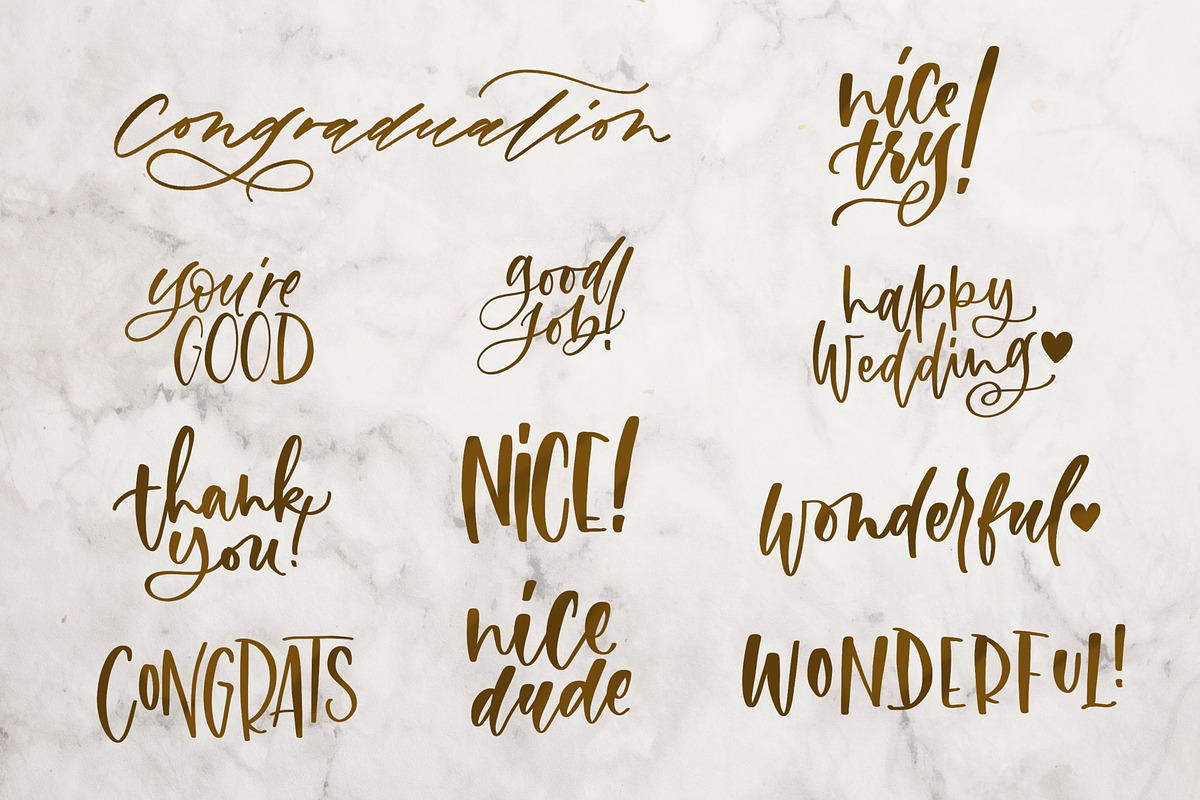 Congraduation
nice
try!
you're
GOOD
good
job!
happy
Wedding
thank
you!
NiCE!
wonderful
CONGRATS
nice
dude
WONDERFUL!